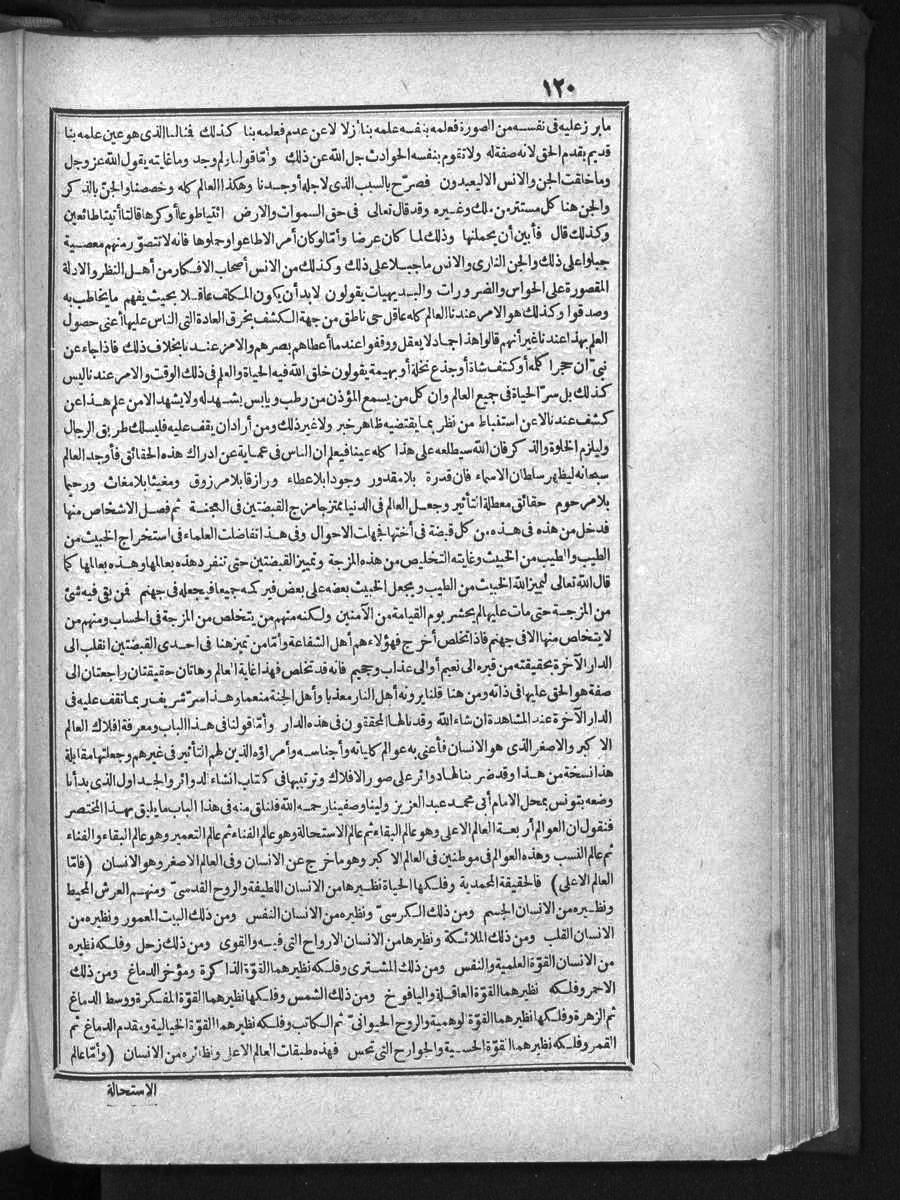 ١٢٠
ما برز عليه في نفسه من الصورة فعلمه بنفسه علمه بنا أزلا لا عن عدم فعلمه بنا كذلك فمثالنا الذى هو عين علمه بنا
قديم بقدم الحق لانه صفة له ولا تقوم بنفسه الحوادث جل الله عن ذلك وأما قولنا ولم وجد وما غايته يقول الله عز وجل
وما خلقت الجن والانس الا ليعبدون فصرّح بالسبب الذى لاجله أوجدنا وهكذا العالم كله وخصصنا والجنّ بالذكر
والجن هنا كل مستتر من ملك وغيره وقد قال تعالى فى حق السموات والارض ائتيا طوعا أوكرها قالتا أتينا طائعين
وكذلك قال فأبين أن يحملنها وذلك لما كان عرضا وأما لو كان أمر الاطاعوا وحملوها فانه لا تتصوّر منهم معصية
جبلوا على ذلك والجن النارى والانس ما جبلا على ذلك وكذلك من الانس أصحاب الافكار من أهل النظر والادلة
المقصورة على الحواس والضرورات والبديهيات يقولون لا بد أن يكون المكلف عاقلا بحيث يفهم ما يخاطب به
وصدقوا وكذلك هو الامر عندنا العالم كله عاقل حى ناطق من جهة الكشف بخرق العادة التى الناس عليها أعنى حصول
العلم بهذا عندنا غير أنهم قالوا هذا جماد لا يعقل ووقفوا عند ما أعطاهم بصرهم والامر عندنا بخلاف ذلك فاذا جاء عن
نبىّ ان حجرا كلمه أو كتف شاة أو جذع نخلة أو بهيمة يقولون خلق الله فيه الحياة والعلم فى ذلك الوقت والامر عندنا ليس
كذلك بل سرّ الحياة فى جميع العالم وان كل من يسمع المؤذن من رطب ويابس يشهد له ولا يشهد الا من علم هذا عن
كشف عندنا لا عن استنباط من نظر بما يقتضيه ظاهر خبر ولا غير ذلك ومن أراد ان يقف عليه فليسلك طريق الرجال
وليلزم الخلوة والذكر فان الله سيطلعه على هذا كله عينا فيعلم ان الناس فى عماية عن ادراك هذه الحقائق فأوجد العالم
سبحانه ليظهر سلطان الاسماء فان قدرة بلا مقدور وجودا بلا عطاء ورازقا بلا مرزوق ومغيثا بلا مغاث ورحيما
بلا مرحوم حقائق معطلة التأثير وجعل العالم فى الدنيا ممتزجا مزج القبضتين فى العجنة ثم فصل الاشخاص منها
فدخل من هذه فى هذه من كل قبضة فى أختها فجهلت الاحوال وفى هذا تفاضلت العلماء فى استخراج الخبيث من
الطيب والطيب من الخبيث وغايته التخليص من هذه المزجة وتمييز القبضتين حتى تنفرد هذه بعالمها وهذه بعالمها كما
قال الله تعالى ليميز الله الخبيث من الطيب ويجعل الخبيث بعضه على بعض فيركمه جميعا فيجعله فى جهنم فمن بقى فيه شئ
من المزجة حتى مات عليها لم يحشر يوم القيامة من الآمنين ولكنه منهم من يتخلص من المزجة فى الحساب ومنهم من
لا يتخلص منها الا فى جهنم فاذا تخلص أخرج فهؤلاء هم أهل الشفاعة وأما من تميز هنا فى احدى القبضتين انقلب الى
الدار الآخرة بحقيقته من قبره الى نعيم أو الى عذاب وجحيم فانه قد تخلص فهذا غاية العالم وهاتان حقيقتان راجعتان الى
صفة هو الحق عليها فى ذاته ومن هنا قلنا يرونه أهل النار معذبا وأهل الجنة منعما وهذا سرّ شريف ربما تقف عليه فى
الدار الآخرة عند المشاهدة ان شاء الله وقد نالها المحققون فى هذه الدار وأما قولنا فى هذا الباب ومعرفة افلاك العالم
الاكبر والاصغر الذى هو الانسان فأعنى به عوالم كلياته وأجناسه وأمراؤه الذين لهم التأثير فى غيرهم وجعلتها مقابلة
هذا نسخة من هذا وقد ضربنا لها دوائر على صور الافلاك وترتيبها فى كتاب انشاء الدوائر والجداول الذى بدأنا
وضعه بتونس بمحل الامام أبى محمد عبد العزيز ولينا وصفينا رحمه الله فلنلق منه فى هذا الباب ما يليق بهذا المختصر
فنقول ان العوالم أربعة العالم الاعلى وهو عالم البقاء ثم عالم الاستحالة وهو عالم الفناء ثم عالم التعمير وهو عالم البقاء والفناء
ثم عالم النسب وهذه العوالم فى موطنين فى العالم الاكبر وهو ما خرج عن الانسان وفى العالم الاصغر وهو الانسان (فاما
العالم الاعلى) فالحقيقة المحمدية وفلكها الحياة نظيرها من الانسان اللطيفة والروح القدسىّ ومنهم العرش المحيط
ونظيره من الانسان الجسم ومن ذلك الكرسىّ ونظيره من الانسان النفس ومن ذلك البيت المعمور ونظيره من
الانسان القلب ومن ذلك الملائكة ونظيرها من الانسان الارواح التى فيه والقوى ومن ذلك زحل وفلكه نظيره
من الانسان القوّة العلمية والنفس ومن ذلك المشترى وفلكه نظيرهما القوّة الذاكرة ومؤخر الدماغ ومن ذلك
الاحمر وفلكه نظيرهما القوّة العاقلة واليافوخ ومن ذلك الشمس وفلكها نظيرهما القوّة المفكرة ووسط الدماغ
ثم الزهرة وفلكها نظيرهما القوّة الوهمية والروح الحيوانىّ ثم الكاتب وفلكه نظيرهما القوّة الخيالية ومقدم الدماغ ثم
القمر وفلكه نظيرهما القوّة الحسية والجوارح التى تحس فهذه طبقات العالم الاعلى ونظائره من الانسان (وأما عالم
الاستحالة